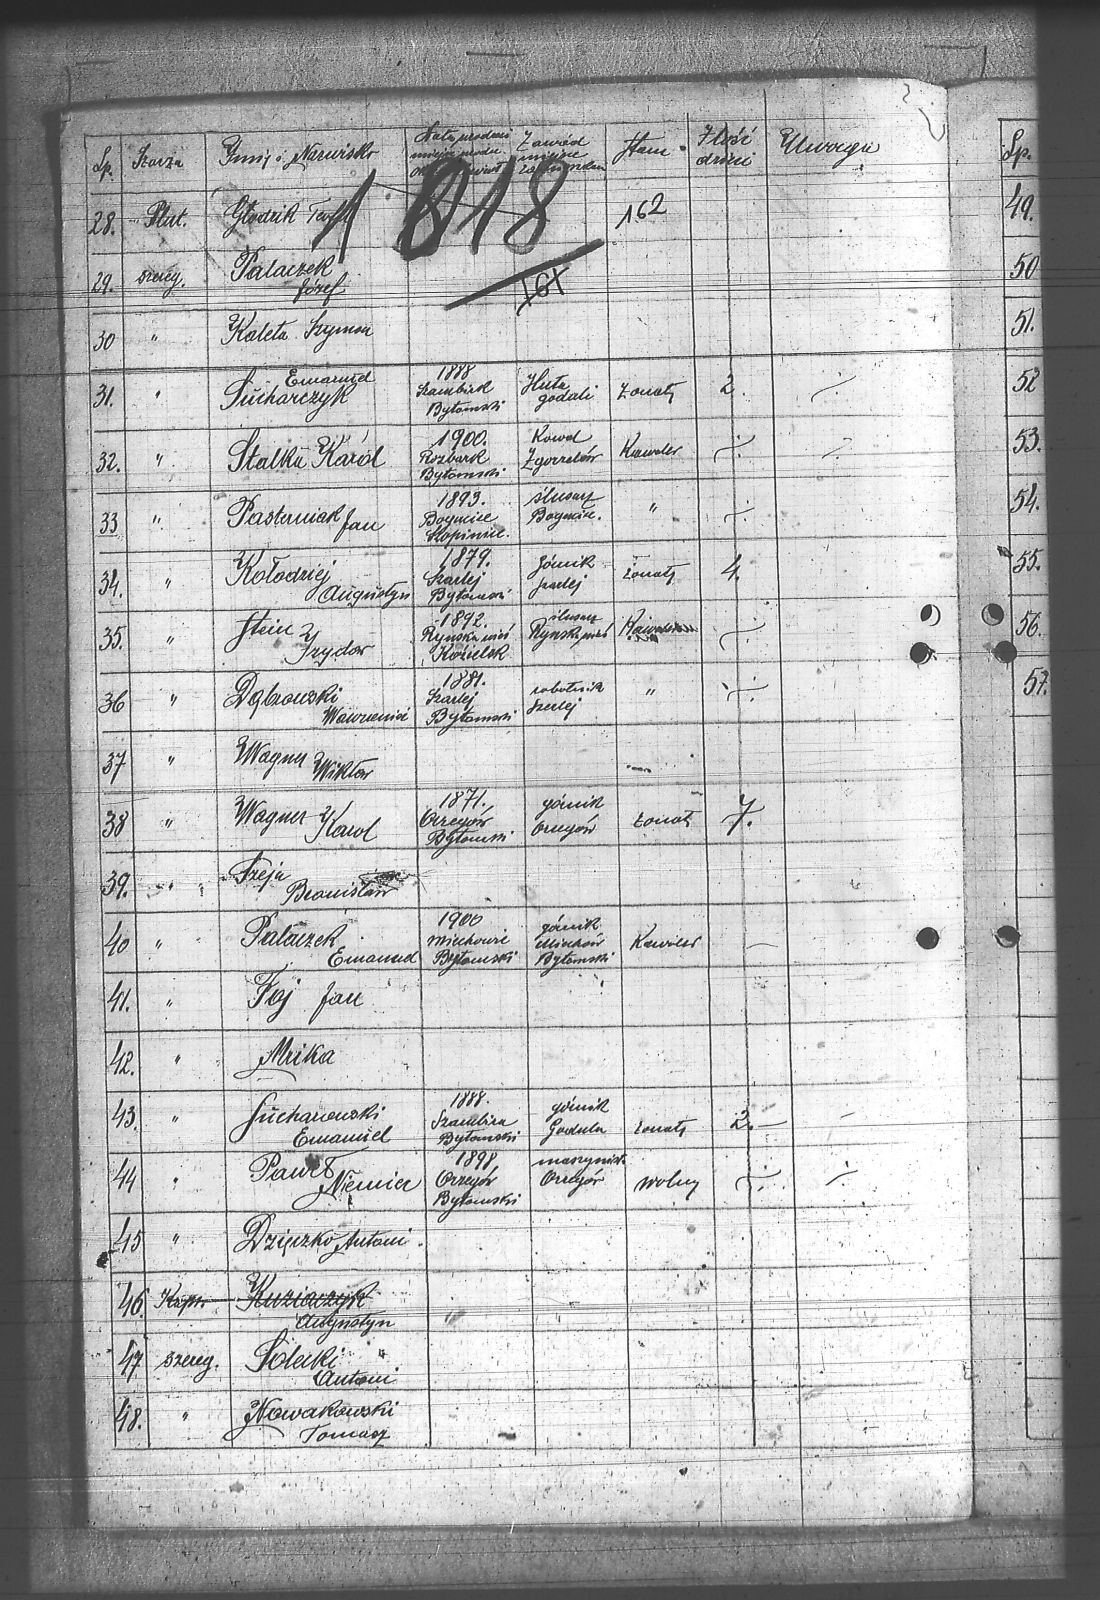 Lp. Szarża Imię i Nazwisko Data urodzenia miejsce Zawód miejsce Stan Ilość dzieci Uwagi
1 818
161
28. Plut. Głodzik Teofil 162
29. szereg. Palaczek Józef
30 " Kaleta Szymon
31. " Sucharczyk Emanuel 1888 Szombierk Bytomski Huta godali żonaty 2.
32. " Stalka Karól 1900. Rozbark Bytomski Kowal Zgorzelów Kawaler
33 " Pasterniak Jan 1893. Bogucice Szopinice. ślusarz Bogucice. "
34. " Kołodziej Augustyn 1879. Szarlej Bytomski górnik szarlej żonaty 4.
35. " Stein Izydor 1892. ślusarz Kawaler
36 " Dąbrowski Wawrzeniec 1881. Szarlej Bytomski robotnik Szarlej "
37 " Wagner Wiktor
38 " Wagner Karol 1871. Orzegów Bytomski górnik Orzegów żonaty 7.
39. " Szeja Bronisław
40 " Palaczek Emanuel 1900 Miechowic Bytomski górnik Miechów Bytomski Kawaler
41. " Foj Jan
42. " Mrika
43. " Suchanowski Emanuel 1888. Szombira Bytomski górnik Godula żonaty 2.
44 " Paweł Niemiec 1898 Orzegór Bytomski maszynist. Orzegór wolny
45 " Dzięczko Antoni
46. Kapr. Kuziaczyk Augustyn
47 szereg. Solecki Antoni
48. " Nowakowski Tomasz
Lp.
49.
50
51.
52
53.
54.
55.
56.
57.